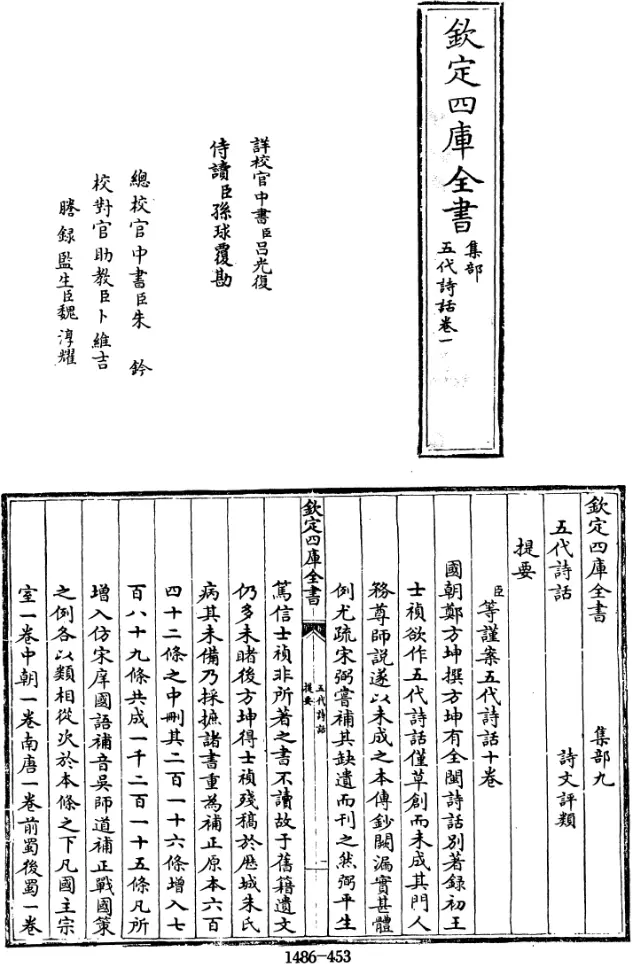 欽定四庫全書
集部
五代詩話卷一
詳校官中書臣吕光復
侍讀臣孫球覆勘
總校官中書臣朱鈐
校對官助教臣卜維吉
謄錄監生臣魏淳耀
欽定四庫全書 集部九
五代詩話 詩文評類
提要
臣等謹案五代詩話十卷
國朝鄭方坤撰方坤有全閩詩話別著錄初王
士禎欲作五代詩話僅草創而未成其門人
務尊師說遂以未成之本傳鈔闕漏實甚體
例尤疏宋弼嘗補其缺遺而刊之然弼平生
欽定四庫全書
五代詩話
提要
一
篤信士禎非所著之書不讀故于舊籍遺文
仍多未睹後方坤得士禎殘稿於厯城朱氏
病其未備乃採摭諸書重為補正原本六百
四十二條之中刪其二百一十六條增入七
百八十九條共成一千二百一十五條凡所
增入仿宋庠國語補音吳師道補正戰國策
之例各以類相從次於本條之下凡國主宗
室一卷中朝一卷南唐一卷前蜀後蜀一卷
1486-453